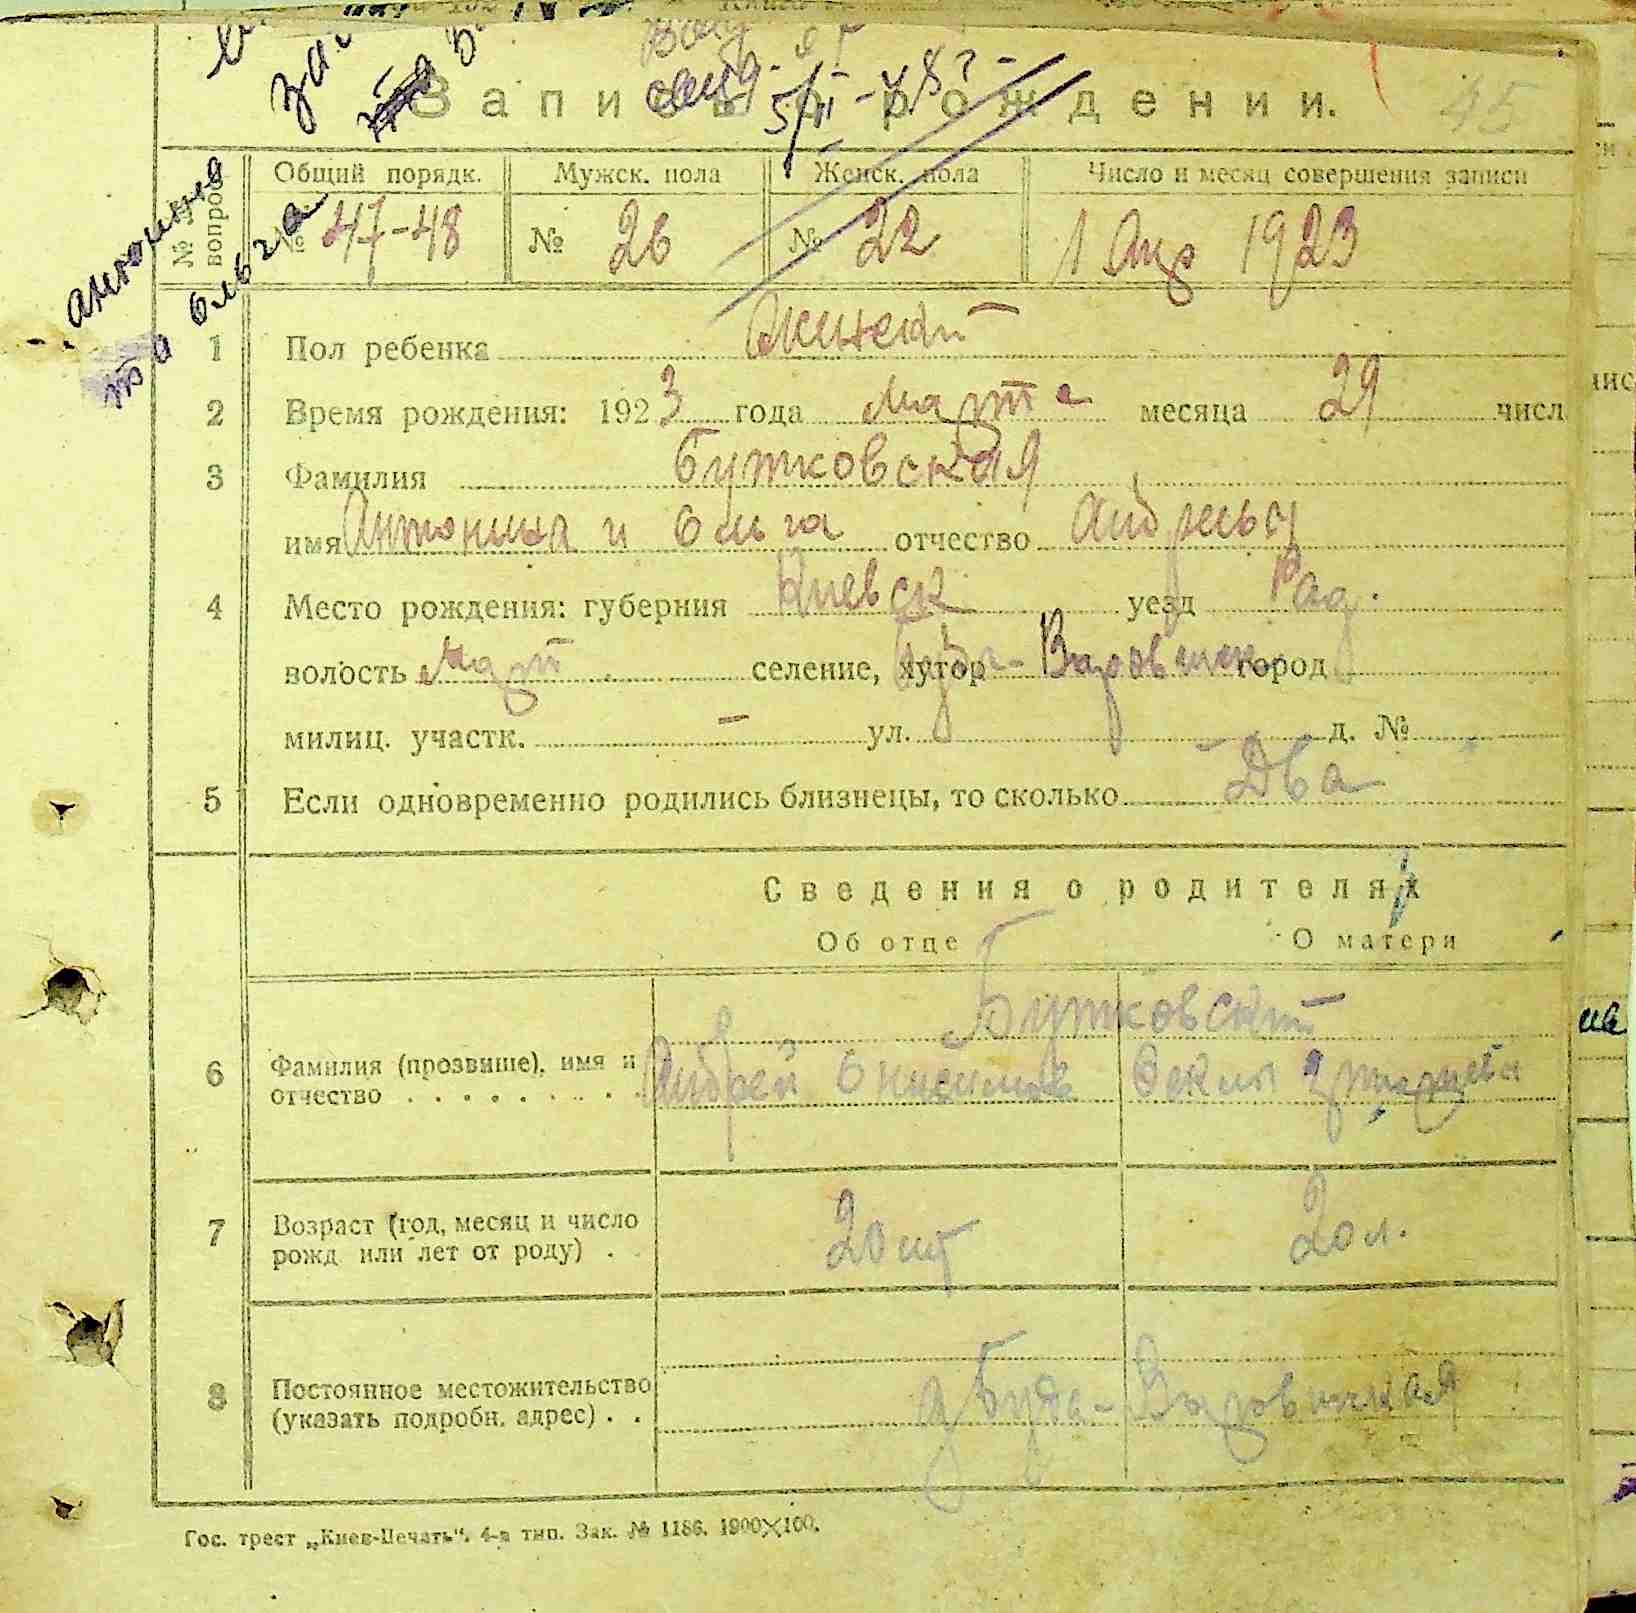 Запись о рождении.
45
№№ вопрос.
Общий порядк.
Мужск. пола
Женск. пола
Число и месяц совершения записи
№ 47-48
№ 26
№ 22
1 Апр 1923
антонина
та ольга
1 Пол ребенка Женский
2 Время рождения: 1923 года марта месяца 29 числ
3 Фамилия Бутковская
имя Антонина и Ольга отчество Андреев
4 Место рождения: губерния Киевск уезд Рад.
волость Март. селение, хутор Буда-Варовичи город
милиц. участк. – ул. д. № –
5 Если одновременно родились близнецы, то сколько Два
Сведения о родителях
Об отце
О матери
Бутковский
6 Фамилия (прозвище), имя и отчество Андрей Онисимов Фекла
7 Возраст (год, месяц и число рожд или лет от роду) 20 лет 20 л.
8 Постоянное местожительство (указать подробн. адрес) д Буда-Варовичская
Гос. трест „Киев-Печать“. 4-я тип. Зак. № 1186. 1900×100.